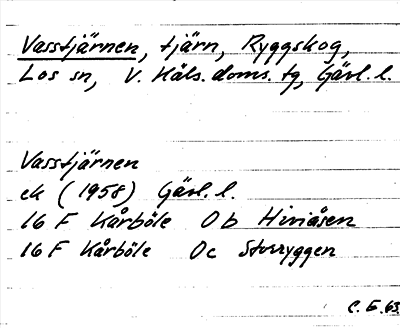 Vasstjärnen, tjärn, Ryggskog,
Los sn, V. Häls. doms. tg, Gävl. l.
Vasstjärnen
ek (1958) Gävl. l.
16 F Kårböle 0b Hiviåsen
16 F Kårböle 0c Storryggen
C. E. 63